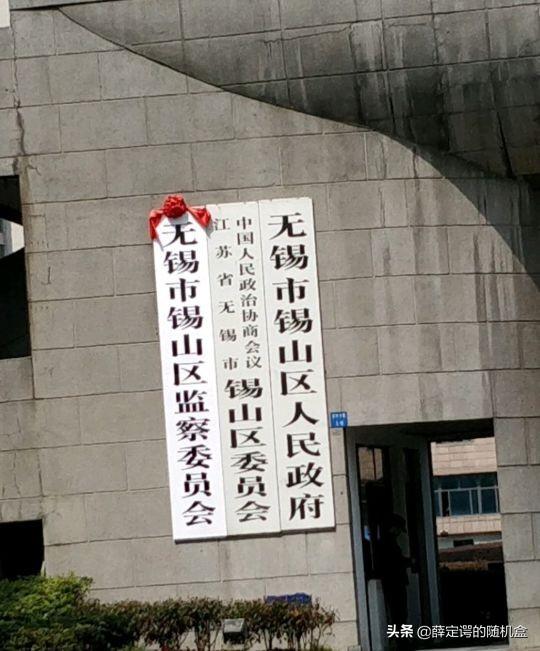 无锡市锡山区人民政府
中国人民政治协商会议
江苏省无锡市
锡山区委员会
无锡市锡山区监察委员会
头条 @薛定谔的随机盒